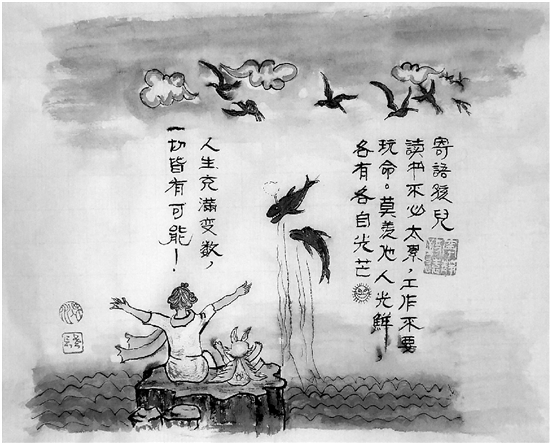 寄語孩兒
讀書不必太累，工作不要
玩命。莫羨他人光鮮，
各有各自光芒
人生充滿變数，
一切皆有可能！